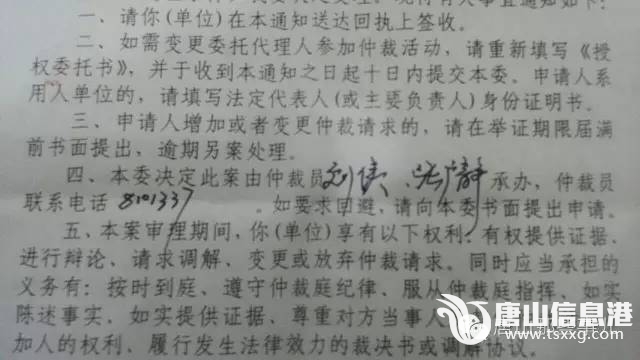 一、请你(单位)在本通知送达回执上签收。
二、如需变更委托代理人参加仲裁活动，请重新填写《授
权委托书》，并于收到本通知之日起十日内提交本委。申请人系
用人单位的，请填写法定代表人(或主要负责人)身份证明书。
三、申请人增加或者变更仲裁请求的，请在举证期限届满
前书面提出，逾期另案处理。
四、本委决定此案由仲裁员刘 、 静承办，仲裁员
联系电话8101337。如要求回避，请向本委书面提出申请。
五、本案审理期间，你(单位)享有以下权利：有权提供证据、
进行辩论、请求调解、变更或放弃仲裁请求。同时应当承担的
义务有：按时到庭、遵守仲裁庭纪律、服从仲裁庭指挥、如实
陈述事实、如实提供证据、尊重对方当事人
加人的权利、履行发生法律效力的裁决书或调解协议。
唐山信息港
www.tsxxg.com